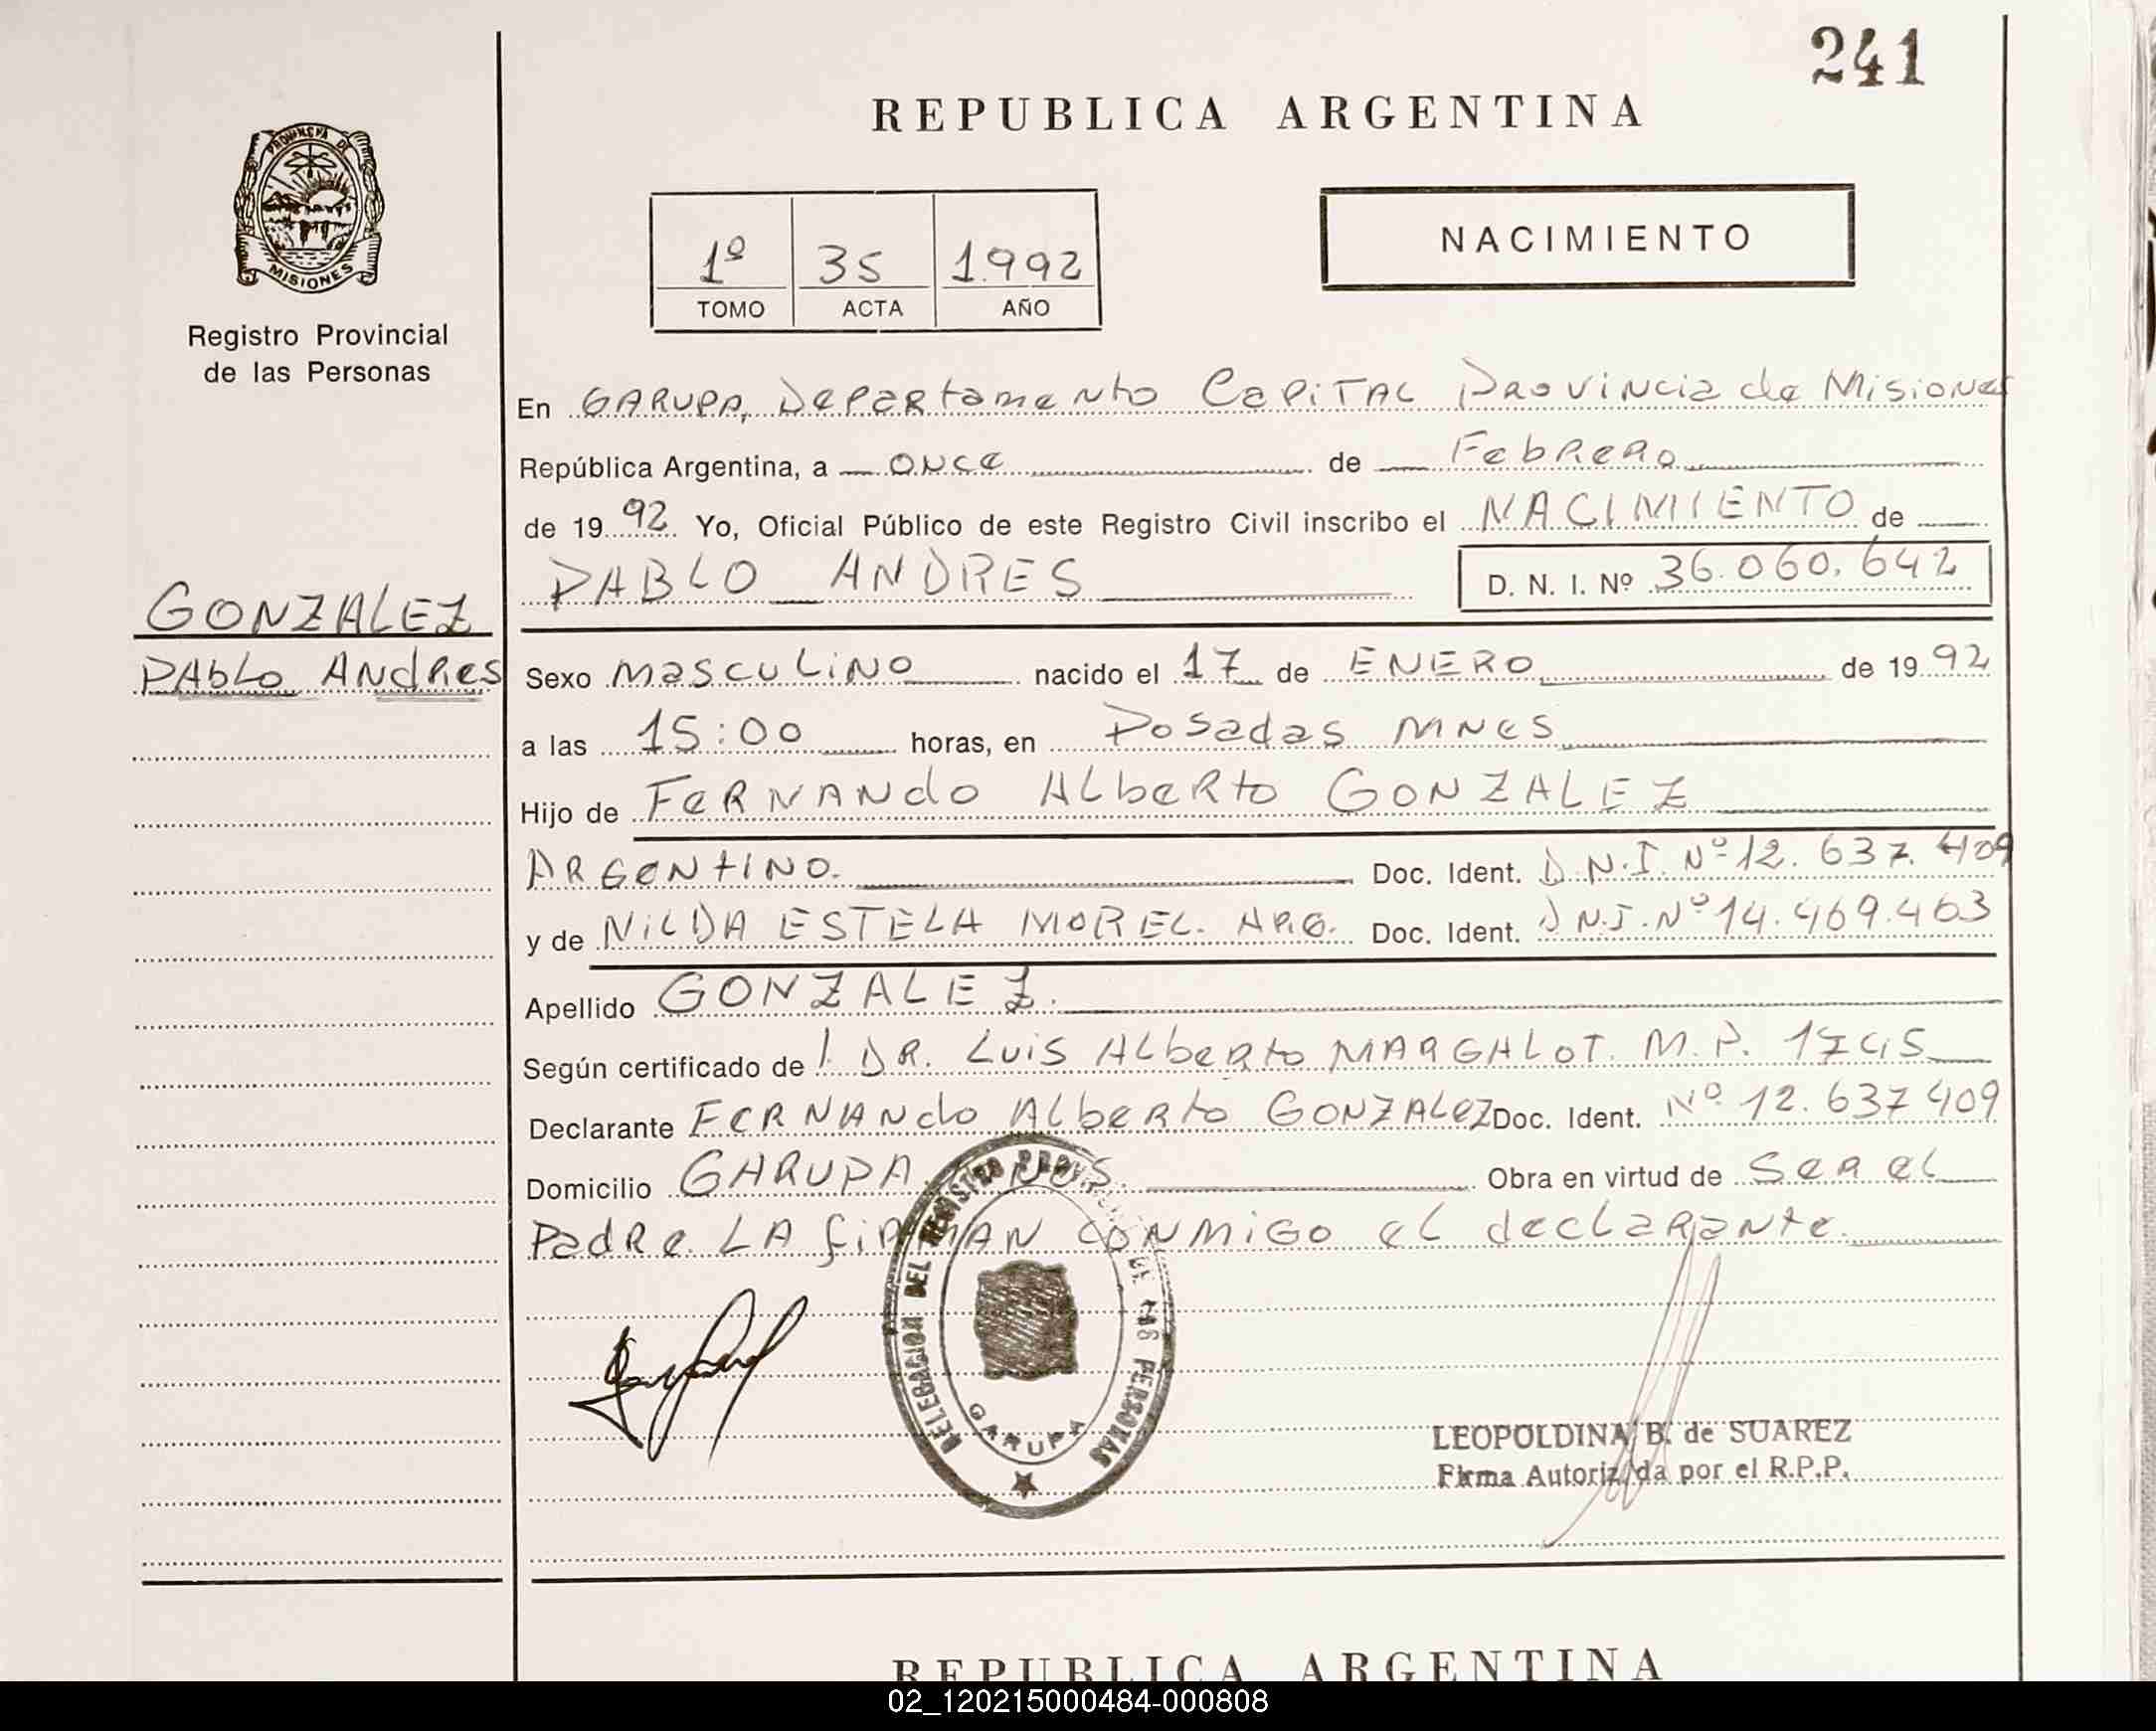 241
REPUBLICA ARGENTINA
PROVINCIA DE
MISIONES
Registro Provincial
de las Personas
1º 35 1.992
TOMO ACTA AÑO
NACIMIENTO
En GARUPA, Departamento CAPITAL Provincia de Misiones
República Argentina, a once de Febrero
de 19 92 Yo, Oficial Público de este Registro Civil inscribo el NACIMIENTO de
PABLO ANDRES D. N. I. Nº 36.060.642
GONZALEZ
Pablo Andres
Sexo masculino nacido el 17 de ENERO de 19 92
a las 15:00 horas, en Posadas MNES
Hijo de FERNANdo Alberto GONZALEZ
ARGENTINO. Doc. Ident. D.N.I. Nº 12.637.409
y de NILDA ESTELA MOREL. ARG. Doc. Ident. D.N.I. Nº 14.469.463
Apellido GONZALEZ.
Según certificado de DR. Luis Alberto MARGALOT. M.P. 1745
Declarante FERNANdo Alberto GONZALEZ Doc. Ident. Nº 12.637409
Domicilio GARUPA Obra en virtud de Ser el
Padre LA firMAN CONMIGO el declarante.
DELEGACION DEL REGISTRO PROVINCIAL DE LAS PERSONAS
GARUPA
LEOPOLDINA B. de SUAREZ
Firma Autorizada por el R.P.P.
REPUBLICA ARGENTINA
02_120215000484-000808